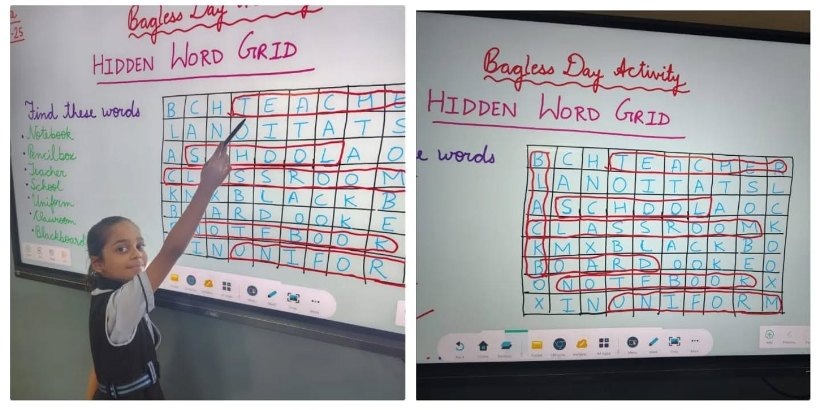 -25
Bagless Day
HIDDEN WORD GRID
Find these words
• Notebook
• Pencil box
• Teacher
• School
• Uniform
• Classroom
• Blackboard
B C H T E A C H E
L A N O I T A T S
A S H O O L A O
C L S S R O O M
K M X B L A C K B
B A R D O O K E
N O T E B O O K
I N U N I F O R
Bagless Day Activity
HIDDEN WORD GRID
e words
B C H T E A C H E R
L A N O I T A T S L
A S C H O O L A O C
C L A S S R O O M K
K M X B L A C K B O
B O A R D O O K E O
O N O T E B O O K X
X I N U N I F O R M